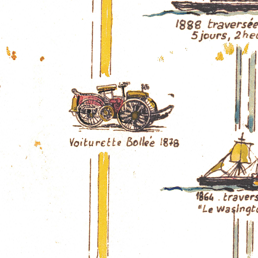 1888 traversée
5 jours, 2 heu
Voiturette Bollée 1878
1864. travers
"Le Wasingto